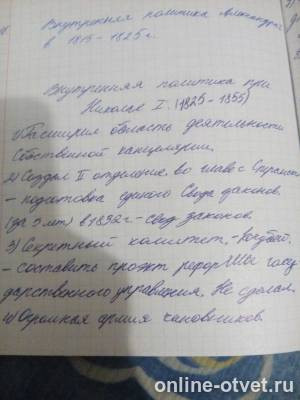 Внутренняя политика Александра
в 1815-1825г.
Внутренняя политика при
Николае I. (1825-1855)
1) Расширил область деятельности
Собственной канцелярии.
2) Создал II отделение во главе с
- подготовка единого Свода законов
(за 5 лет) в 1832г - свод законов.
3) Секретный комитет,
- составить проэкт реформы госу
дарственного управления. Не сделал.
4) Огромная армия чиновников.
online-otvet.ru